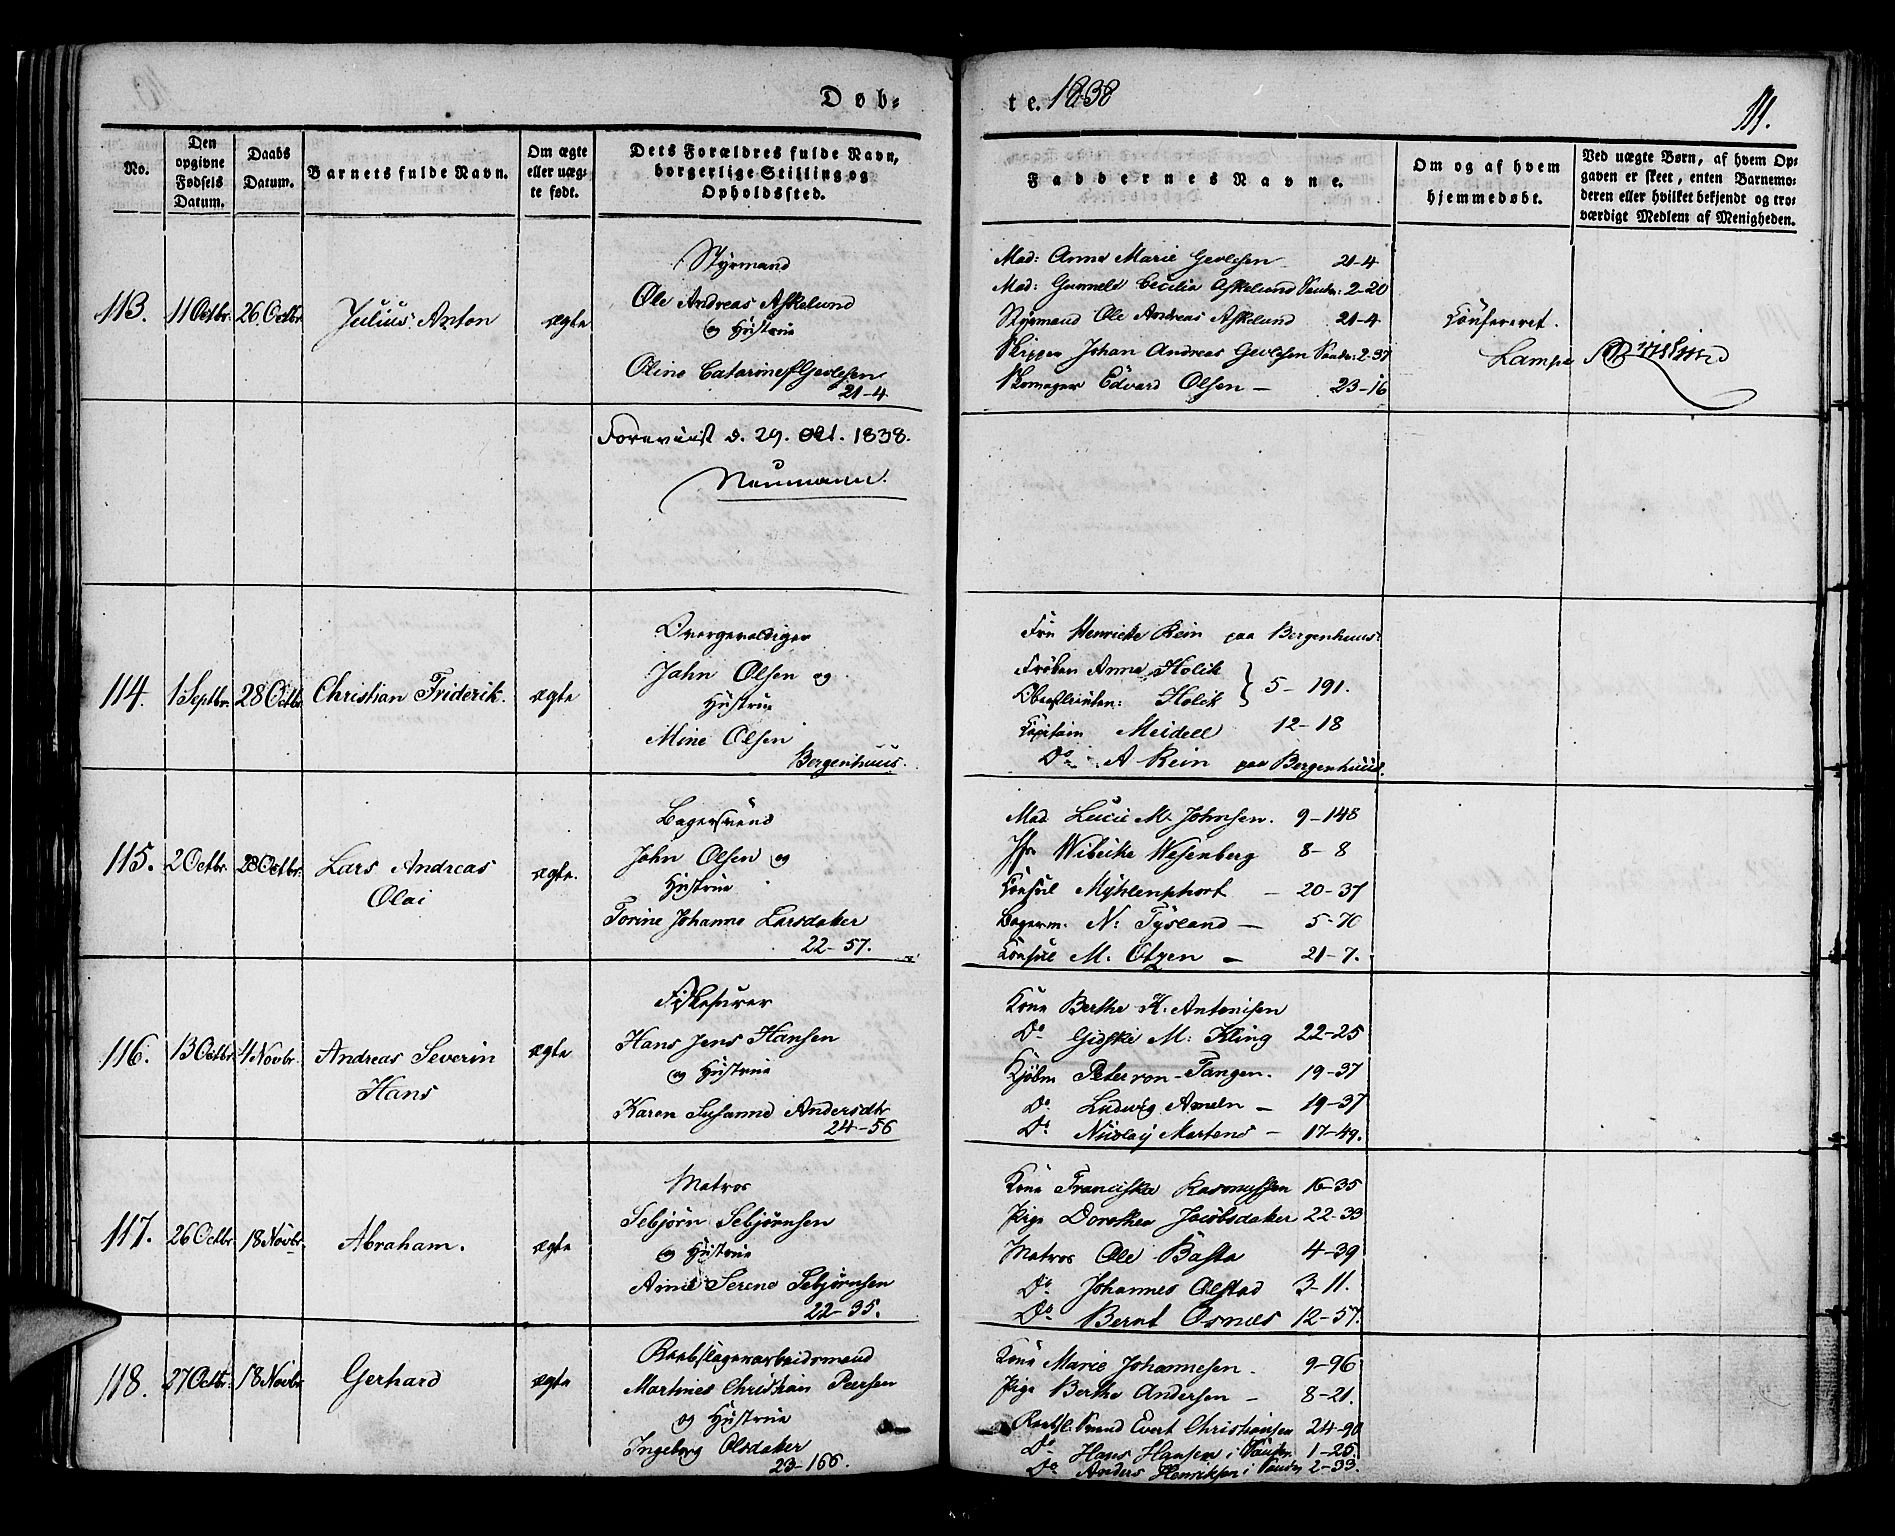 Døb-
te. 1838
111.
No.
Den opgivne Fødsels Datum.
Daabs Datum.
Barnets fulde Navn.
Om ægte eller uægte født.
Dets Forældres fulde Navn, borgerlige Stilling og Opholdssted.
Faddernes Navne.
Om og af hvem hjemmedøbt.
Ved uægte Børn, af hvem Opgaven er skeet, enten Barnemoderen eller hvilket bekjendt og troværdigt Medlem af Menigheden.
113. 11 Octbr. 26 Octbr. Julius Anton ægte
Styrmand
Ole Andreas Askelund
og Hustrue
Oline Catarine Gevlesen
21-4
Mad: Anne Marie Gevlesen 21-4
Mad: Gunnele Cecilia Askelund Sandv: 2-20
Styrmand Ole Andreas Askelund 21-4
Skipper Johan Andreas Gevlesen Sandv: 2-37
Skomager Edvard Olsen - 23-16
Confereret.
Lampe
Foreviist d. 29. Oct. 1838.
Neumann.
114. 1 Septbr. 28 Octbr. Christian Friderik. ægte
Overgevaldiger
John Olsen og
Hustrue
Mine Olsen
Bergenhuus.
Frue Henricke Rein paa Bergenhuus:
Frøken Anna Holck
Holck } 5-191.
Capitain Meidell 12-18
Do A Rein paa Bergenhuus.
115. 2 Octbr. 28 Octbr. Lars Andreas ægte.
Olai
Bagersvend
John Olsen og
Hustrue
Torine Johanne Larsdatter
22-57.
Mad. Lucie M. Johnsen. 9-148
Jfr. Wibeike Wesenberg 8-8
Consul Mühlenphort - 20-37
Bagerm. N: Tysland - 5-70
Consul M. Otzen - 21-7.
116. 13 Octbr. 4 Novbr. Andreas Severin ægte
Hans
Hans Jens Hansen
og Hustrue
Karen Susanne Andersdtr
24-56
Kone Berthe K. Antonisen
Do Gidske M: Kling 22-25
Kjøbm Peter von Tangen. 19-37
Do Ludwig Ameln - 19-37
Do Nicolay Martens - 17-49.
117. 26 Octbr. 18 Novbr. Abraham. ægte
Matros
Sebjørn Sebjørnsen
og Hustrue
Anne Serene Sebjørnsen
22-35.
Kone Franciska Rasmussen 16-35
Pige Dorothea Jacobsdatter 22-33
Matros Ole Basta 4-39
Do Johannes Olstad 3-11.
Do Bernt Osnes 12-57.
118. 27 Octbr. 18 Novbr. Gerhard ægte
Reebslagerarbeidsmand
Martines Christian Peersen
og Hustrue
Ingeborg Olsdatter
23-166.
Kone Marie Johannesen. 9-96
Pige Berthe Andersen - 8-21.
Reebsl. Svend Evert Christiansen 24-90
Do Hans Hansen i Sandv. 1-25.
Do Anders Henriksen i Sandv 2-33.